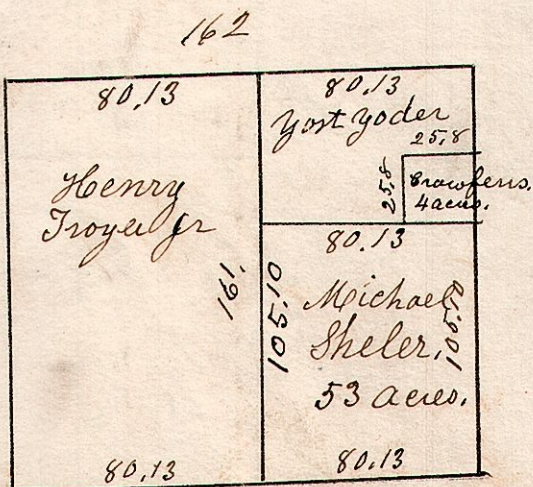 162
80.13
Henry
Troyer Jr
161.
80.13
80.13
Yost Yoder
25.8
25.8
4 acres.
80.13
105.10
Michael
Sheler.
53 acres.
105.10
80.13